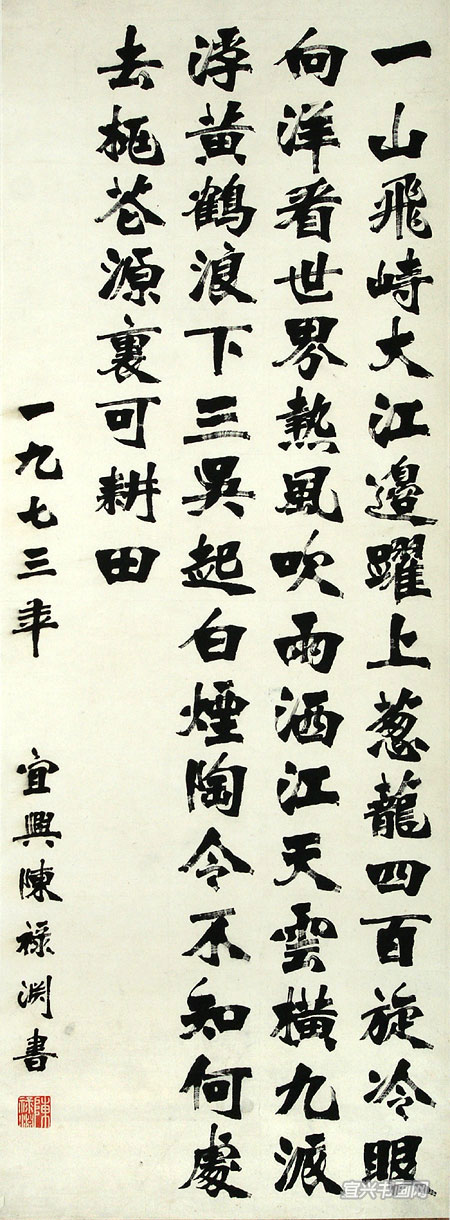 一山飛峙大江邊躍上葱蘢四百旋冷眼
向洋看世界熱風吹雨洒江天雲橫九派
浮黄鶴浪下三吳起白煙陶令不知何處
去桃花源裏可耕田
一九七三年 宜興陳祿渊書
陳祿淵
宜兴书画网